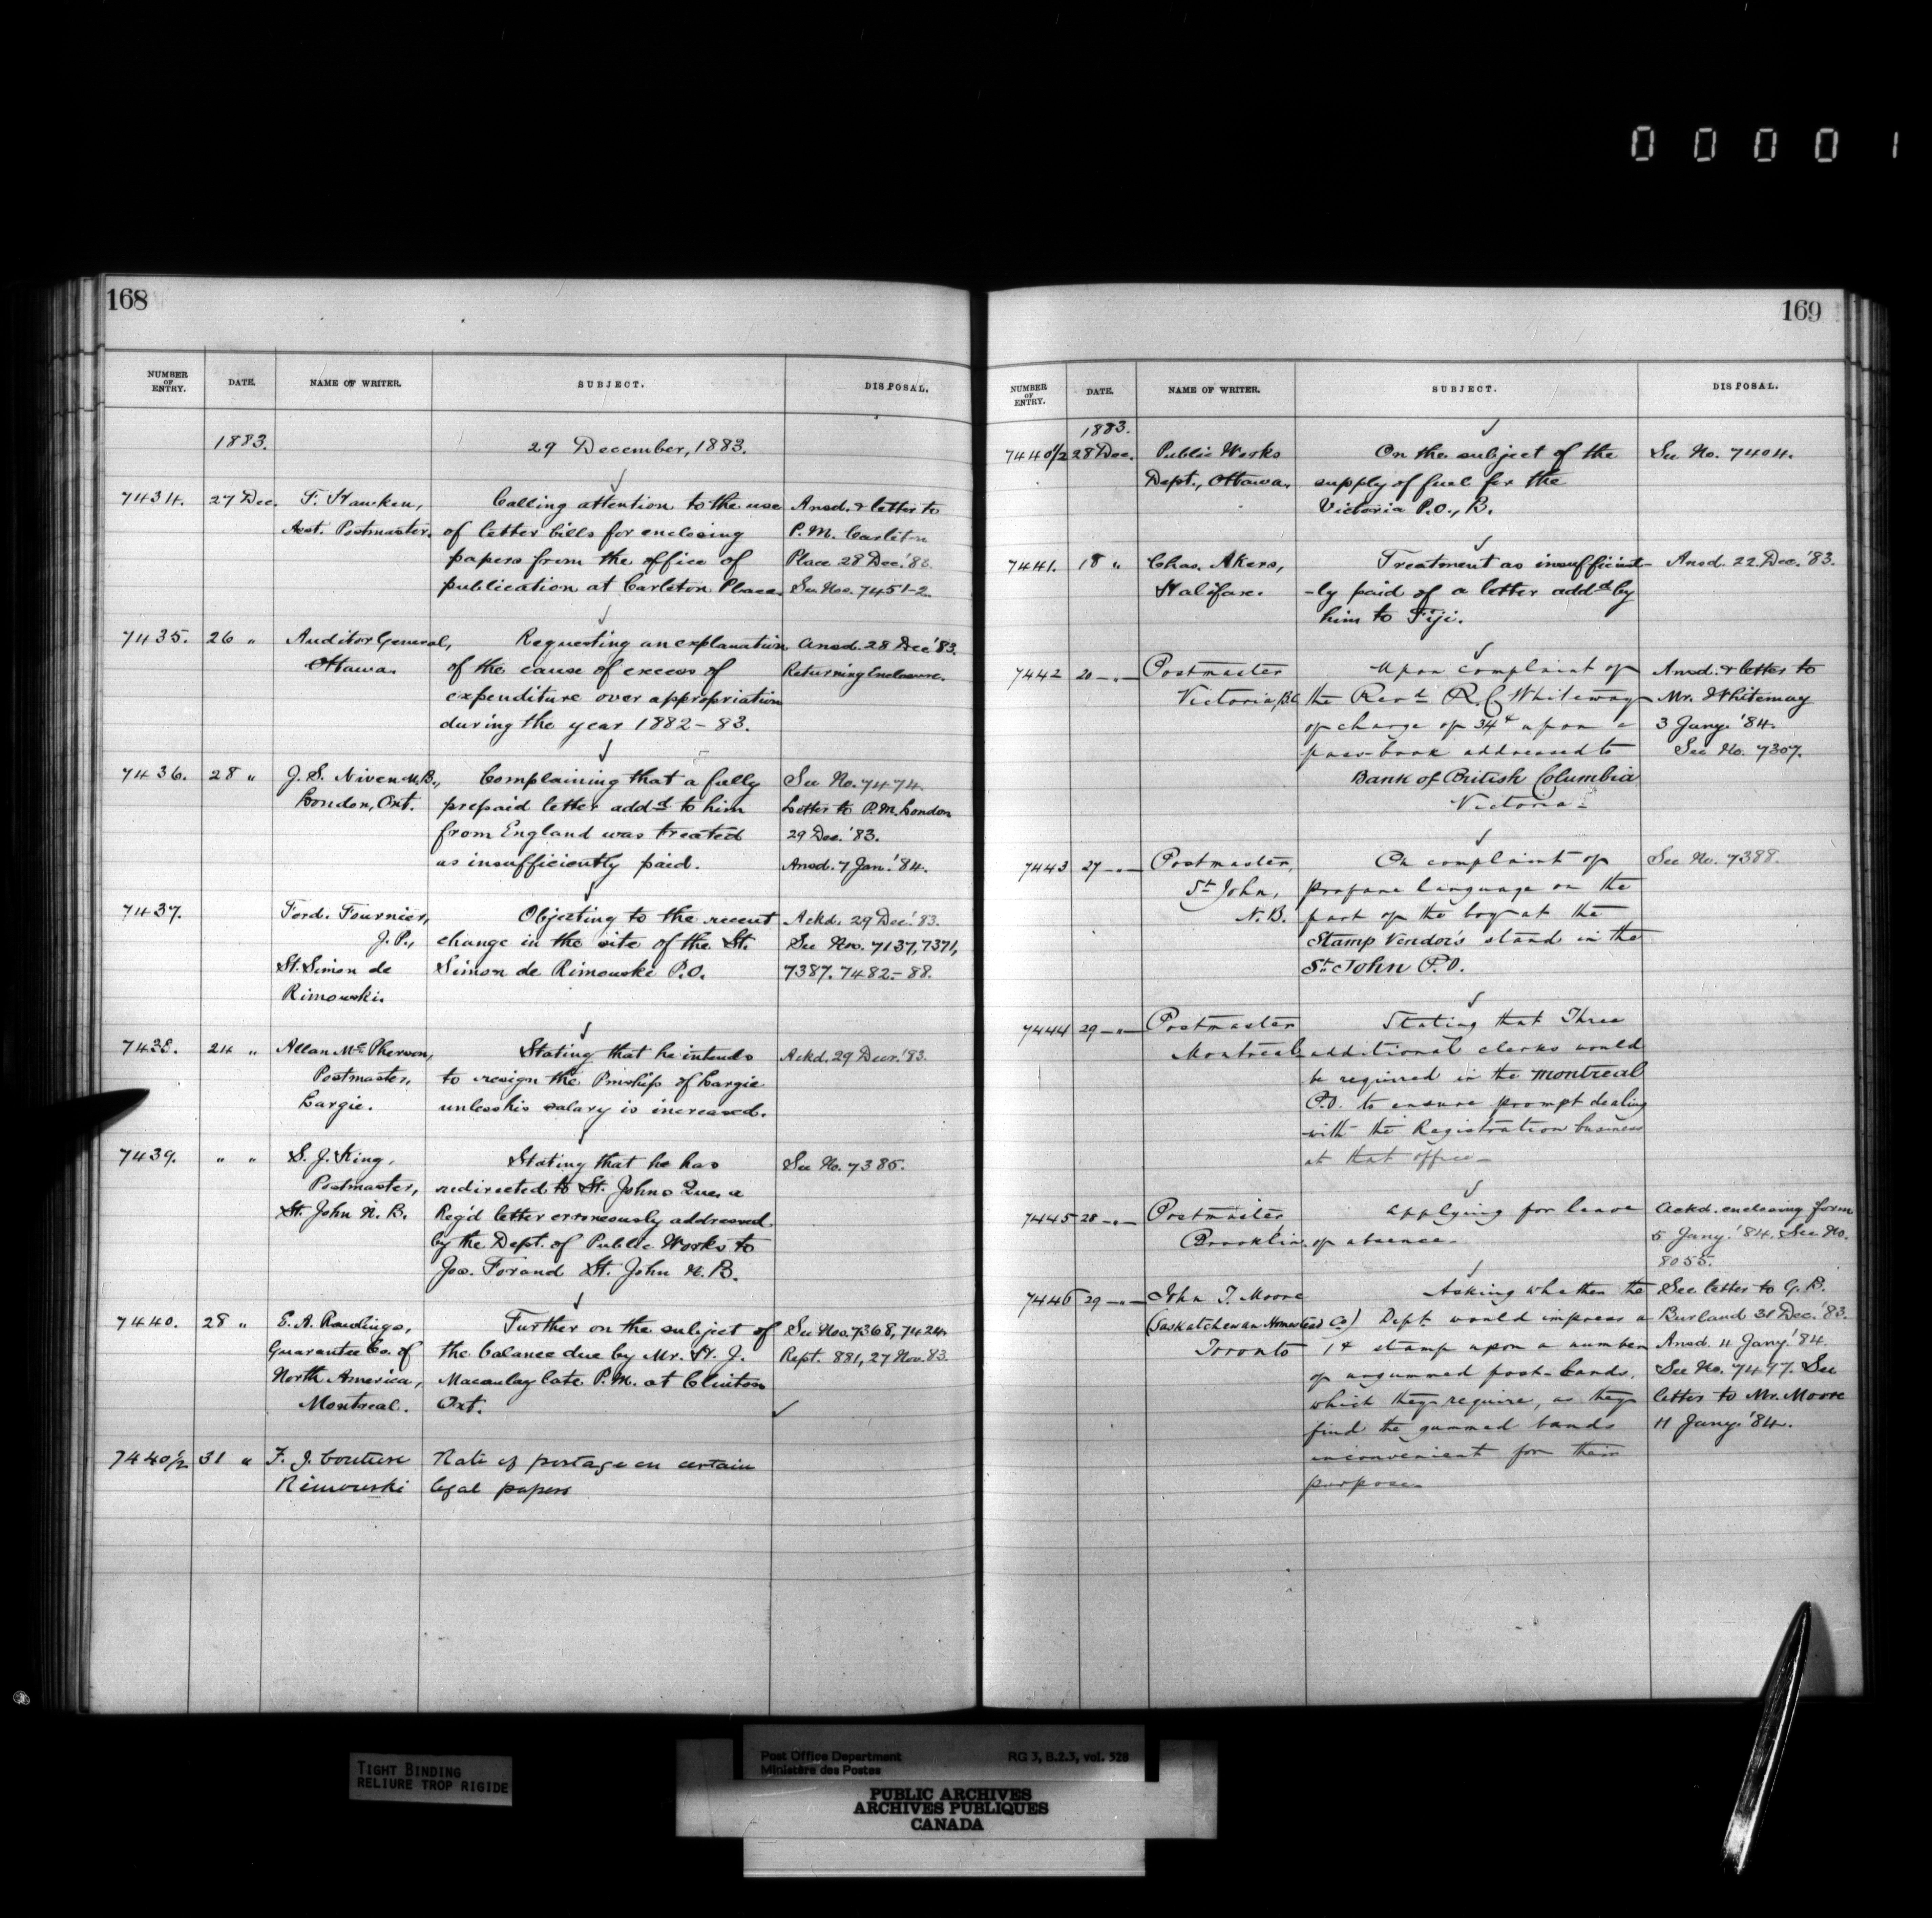 00001
168
NUMBER OF ENTRY. DATE. NAME OF WRITER. SUBJECT. DISPOSAL.
1883. 29 December, 1883.
7434. 27 Dec. F. Hawken, Calling attention to the use Ansd. & letter to
Asst. Postmaster. of letter bills for enclosing P.M. Carleton
papers from the office of Place 28 Dec. '83.
publication at Carleton Place. See Nos. 7451-2.
7435. 26 " Auditor General, Requesting an explanation Ansd. 28 Dec '83.
Ottawa. of the cause of excess of Returning Enclosure.
expenditure over appropriation
during the year 1882-83.
7436. 28 " J. S. Niven M.B., Complaining that a fully See No. 7474.
London, Ont. prepaid letter addd to him Letter to P.M. London
from England was treated 29 Dec. '83.
as insufficiently paid. Ansd. 7 Jan. '84.
7437. Ferd. Fournier, Objecting to the recent Ackd. 29 Dec. '83.
J.P., change in the site of the St. See Nos. 7137, 7371,
St. Simon de Simon de Rimouski P.O. 7387. 7482-88.
Rimouski.
7438. 24 " Allan McPherson, Stating that he intends Ackd. 29 Decr. '83.
Postmaster, to resign the Pmship of Largie
Largie. unless his salary is increased.
7439. " " S. J. King, Stating that he has See No. 7385.
Postmaster, redirected to St. Johns Que. a
St. John N.B. Reg'd letter erroneously addressed
by the Dept. of Public Works to
Jos. Forand St. John N.B.
7440. 28 " E. A. Rawlings, Further on the subject of See Nos. 7368, 7424.
Guarantee Co. of the balance due by Mr. H. J. Rept. 881, 27 Nov. 83.
North America, Macaulay late P.M. at Clinton
Montreal. Ont.
7440½ 31 " F. J. Couture Rate of postage on certain
Rimouski legal papers
169
NUMBER OF ENTRY. DATE. NAME OF WRITER. SUBJECT. DISPOSAL.
1883.
7440½ 28 Dec. Public Works On the subject of the See No. 7404.
Dept., Ottawa. supply of fuel for the
Victoria P.O., B.
7441. 18 " Chas. Akers, Treatment as insufficient- Ansd. 22 Dec. '83.
Halifax. -ly paid of a letter addd by
him to Fiji.
7442 20 - " - Postmaster Upon complaint of Ansd. & letter to
Victoria, B.C. the Revd R. C Whiteway Mr. Whiteway
of charge of 34¢ upon a 3 Jany. '84.
pass-book addressed to See No. 7307.
Bank of British Columbia
Victoria -
7443 27 - " - Postmaster, On complaint of See No. 7388.
St John, profane language on the
N.B. part of the boy at the
Stamp Vendor's stand in the
St. John P.O.
7444 29 - " - Postmaster Stating that Three
Montreal additional clerks would
be required in the Montreal
P.O. to ensure prompt dealing
with the Registration business
at that office -
7445 28 - " - Postmaster Applying for leave Ackd. enclosing form
Brooklin. of absence - 5 Jany. '84. See No.
8055.
7446 29 - " - John T. Moore Asking whether the See letter to G. B.
(Saskatchewan Homestead Co) Dept. would impress a Burland 31 Dec. '83.
Toronto 1¢ stamp upon a number Ansd. 11 Jany. '84.
of ungummed post-bands, See No. 7497. See
which they require, as they letter to Mr. Moore
find the gummed bands 11 Jany. '84.
inconvenient for their
purpose.
TIGHT BINDING
RELIURE TROP RIGIDE
Post Office Department RG 3, B.2.3, vol. 528
Ministère des Postes
PUBLIC ARCHIVES
ARCHIVES PUBLIQUES
CANADA